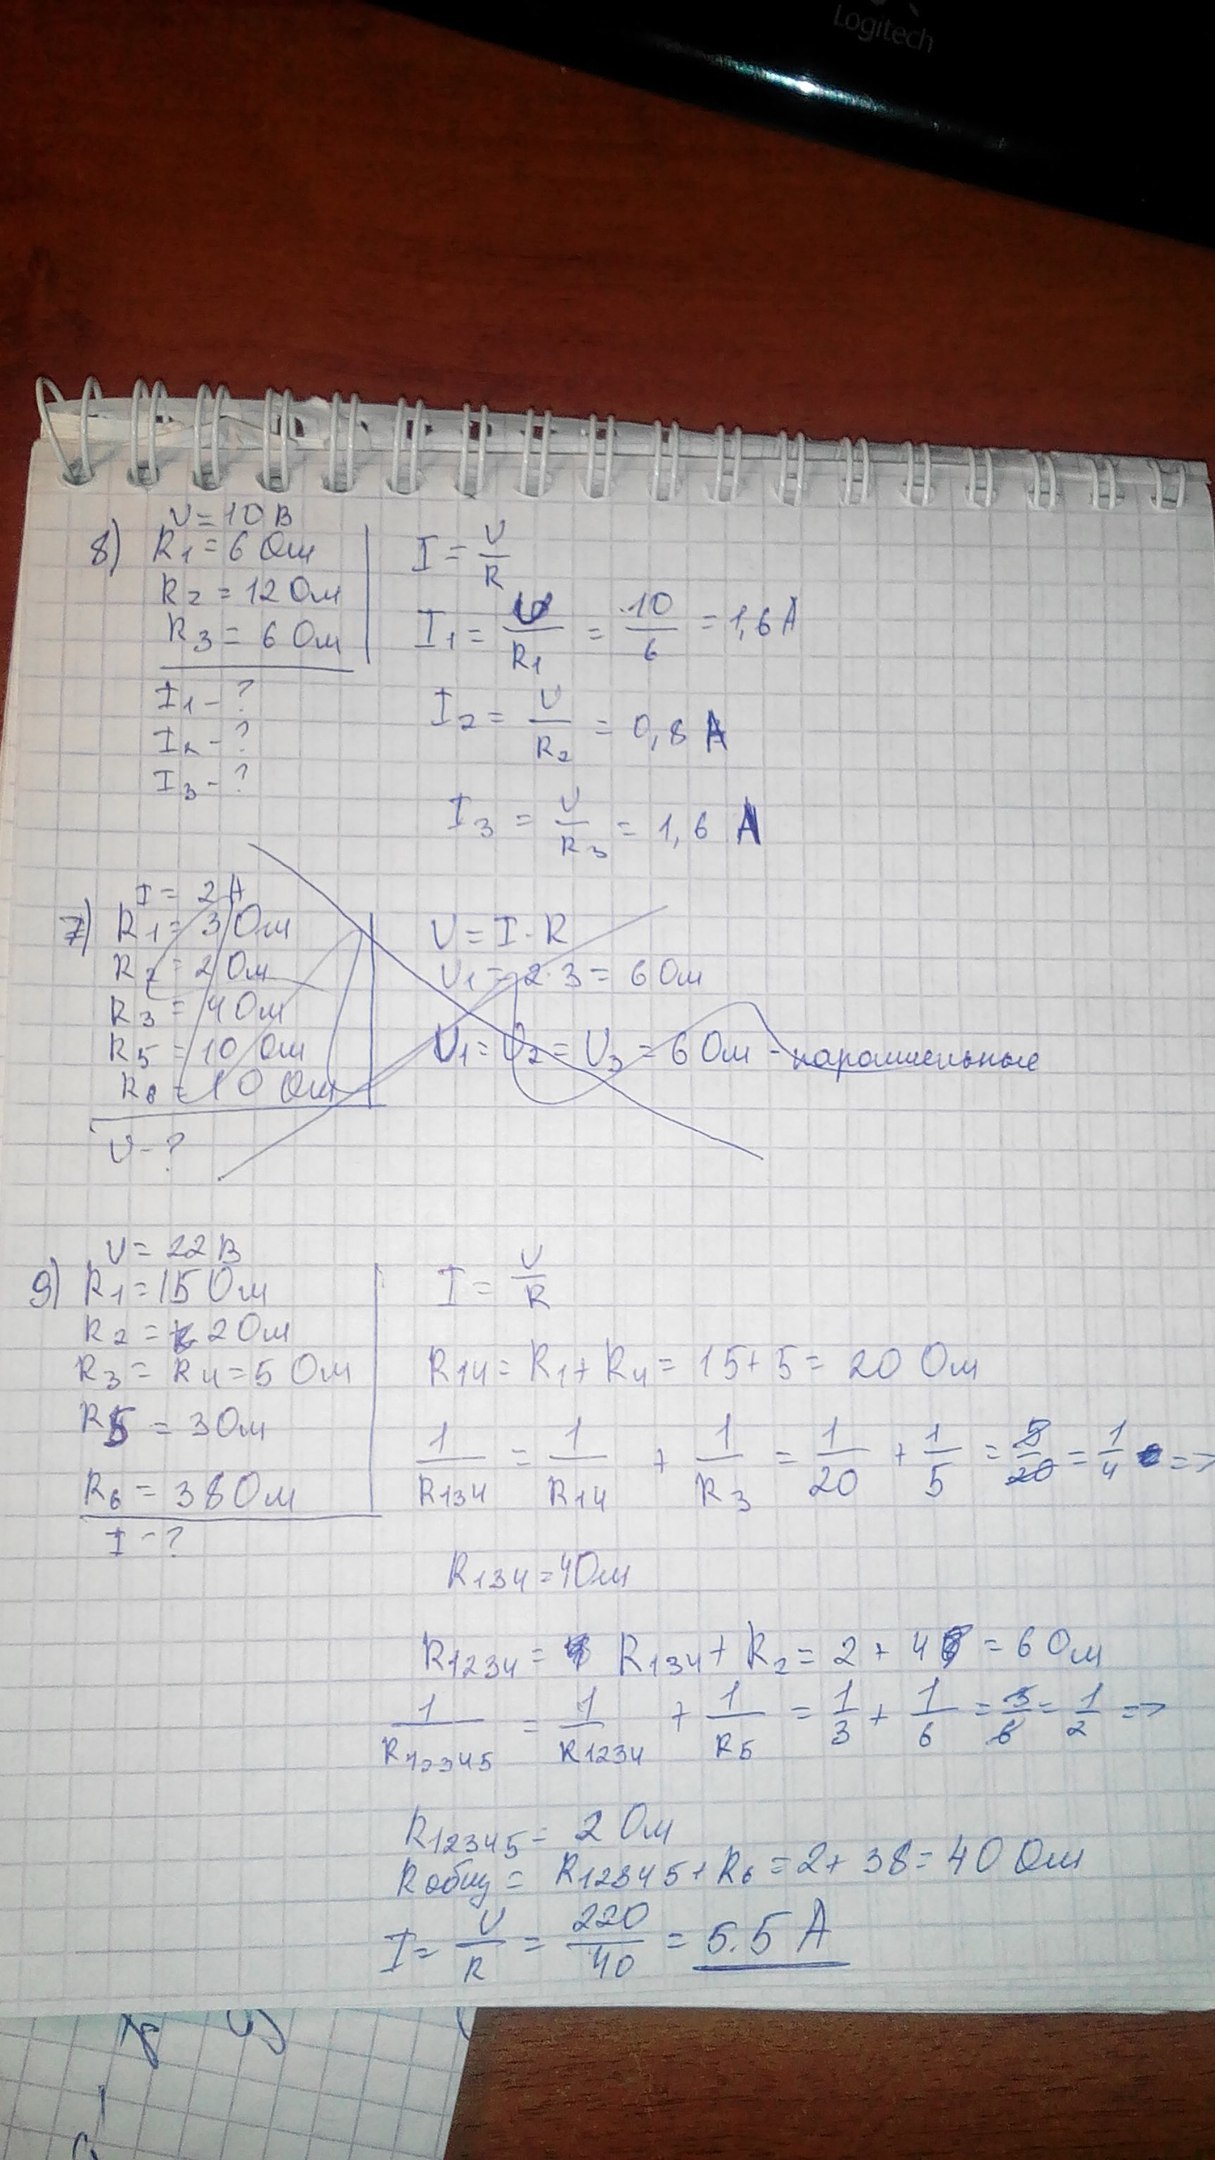 Logitech
U = 10 В
8) R1 = 6 Ом
R2 = 12 Ом
R3 = 6 Ом
I1 - ?
I2 - ?
I3 - ?
I = U/R
I1 = U/R1 = 10/6 = 1,6 А
I2 = U/R2 = 0,8 А
I3 = U/R3 = 1,6 А
I = 2 А
7) R1 = 3 Ом
R2 = 2 Ом
R3 = 4 Ом
R5 = 10 Ом
R6 = 10 Ом
U - ?
U = I · R
U1 = 2 · 3 = 6 Ом
U1 = U2 = U3 = 6 Ом - параллельные
U = 22 В
9) R1 = 15 Ом
R2 = 2 Ом
R3 = R4 = 5 Ом
R5 = 3 Ом
R6 = 38 Ом
I - ?
I = U/R
R14 = R1 + R4 = 15 + 5 = 20 Ом
1/R134 = 1/R14 + 1/R3 = 1/20 + 1/5 = 5/20 = 1/4 =>
R134 = 4 Ом
R1234 = R134 + R2 = 2 + 4 = 6 Ом
1/R12345 = 1/R1234 + 1/R5 = 1/3 + 1/6 = 3/6 = 1/2 =>
R12345 = 2 Ом
Rобщ = R12345 + R6 = 2 + 38 = 40 Ом
I = U/R = 220/40 = 5.5 А